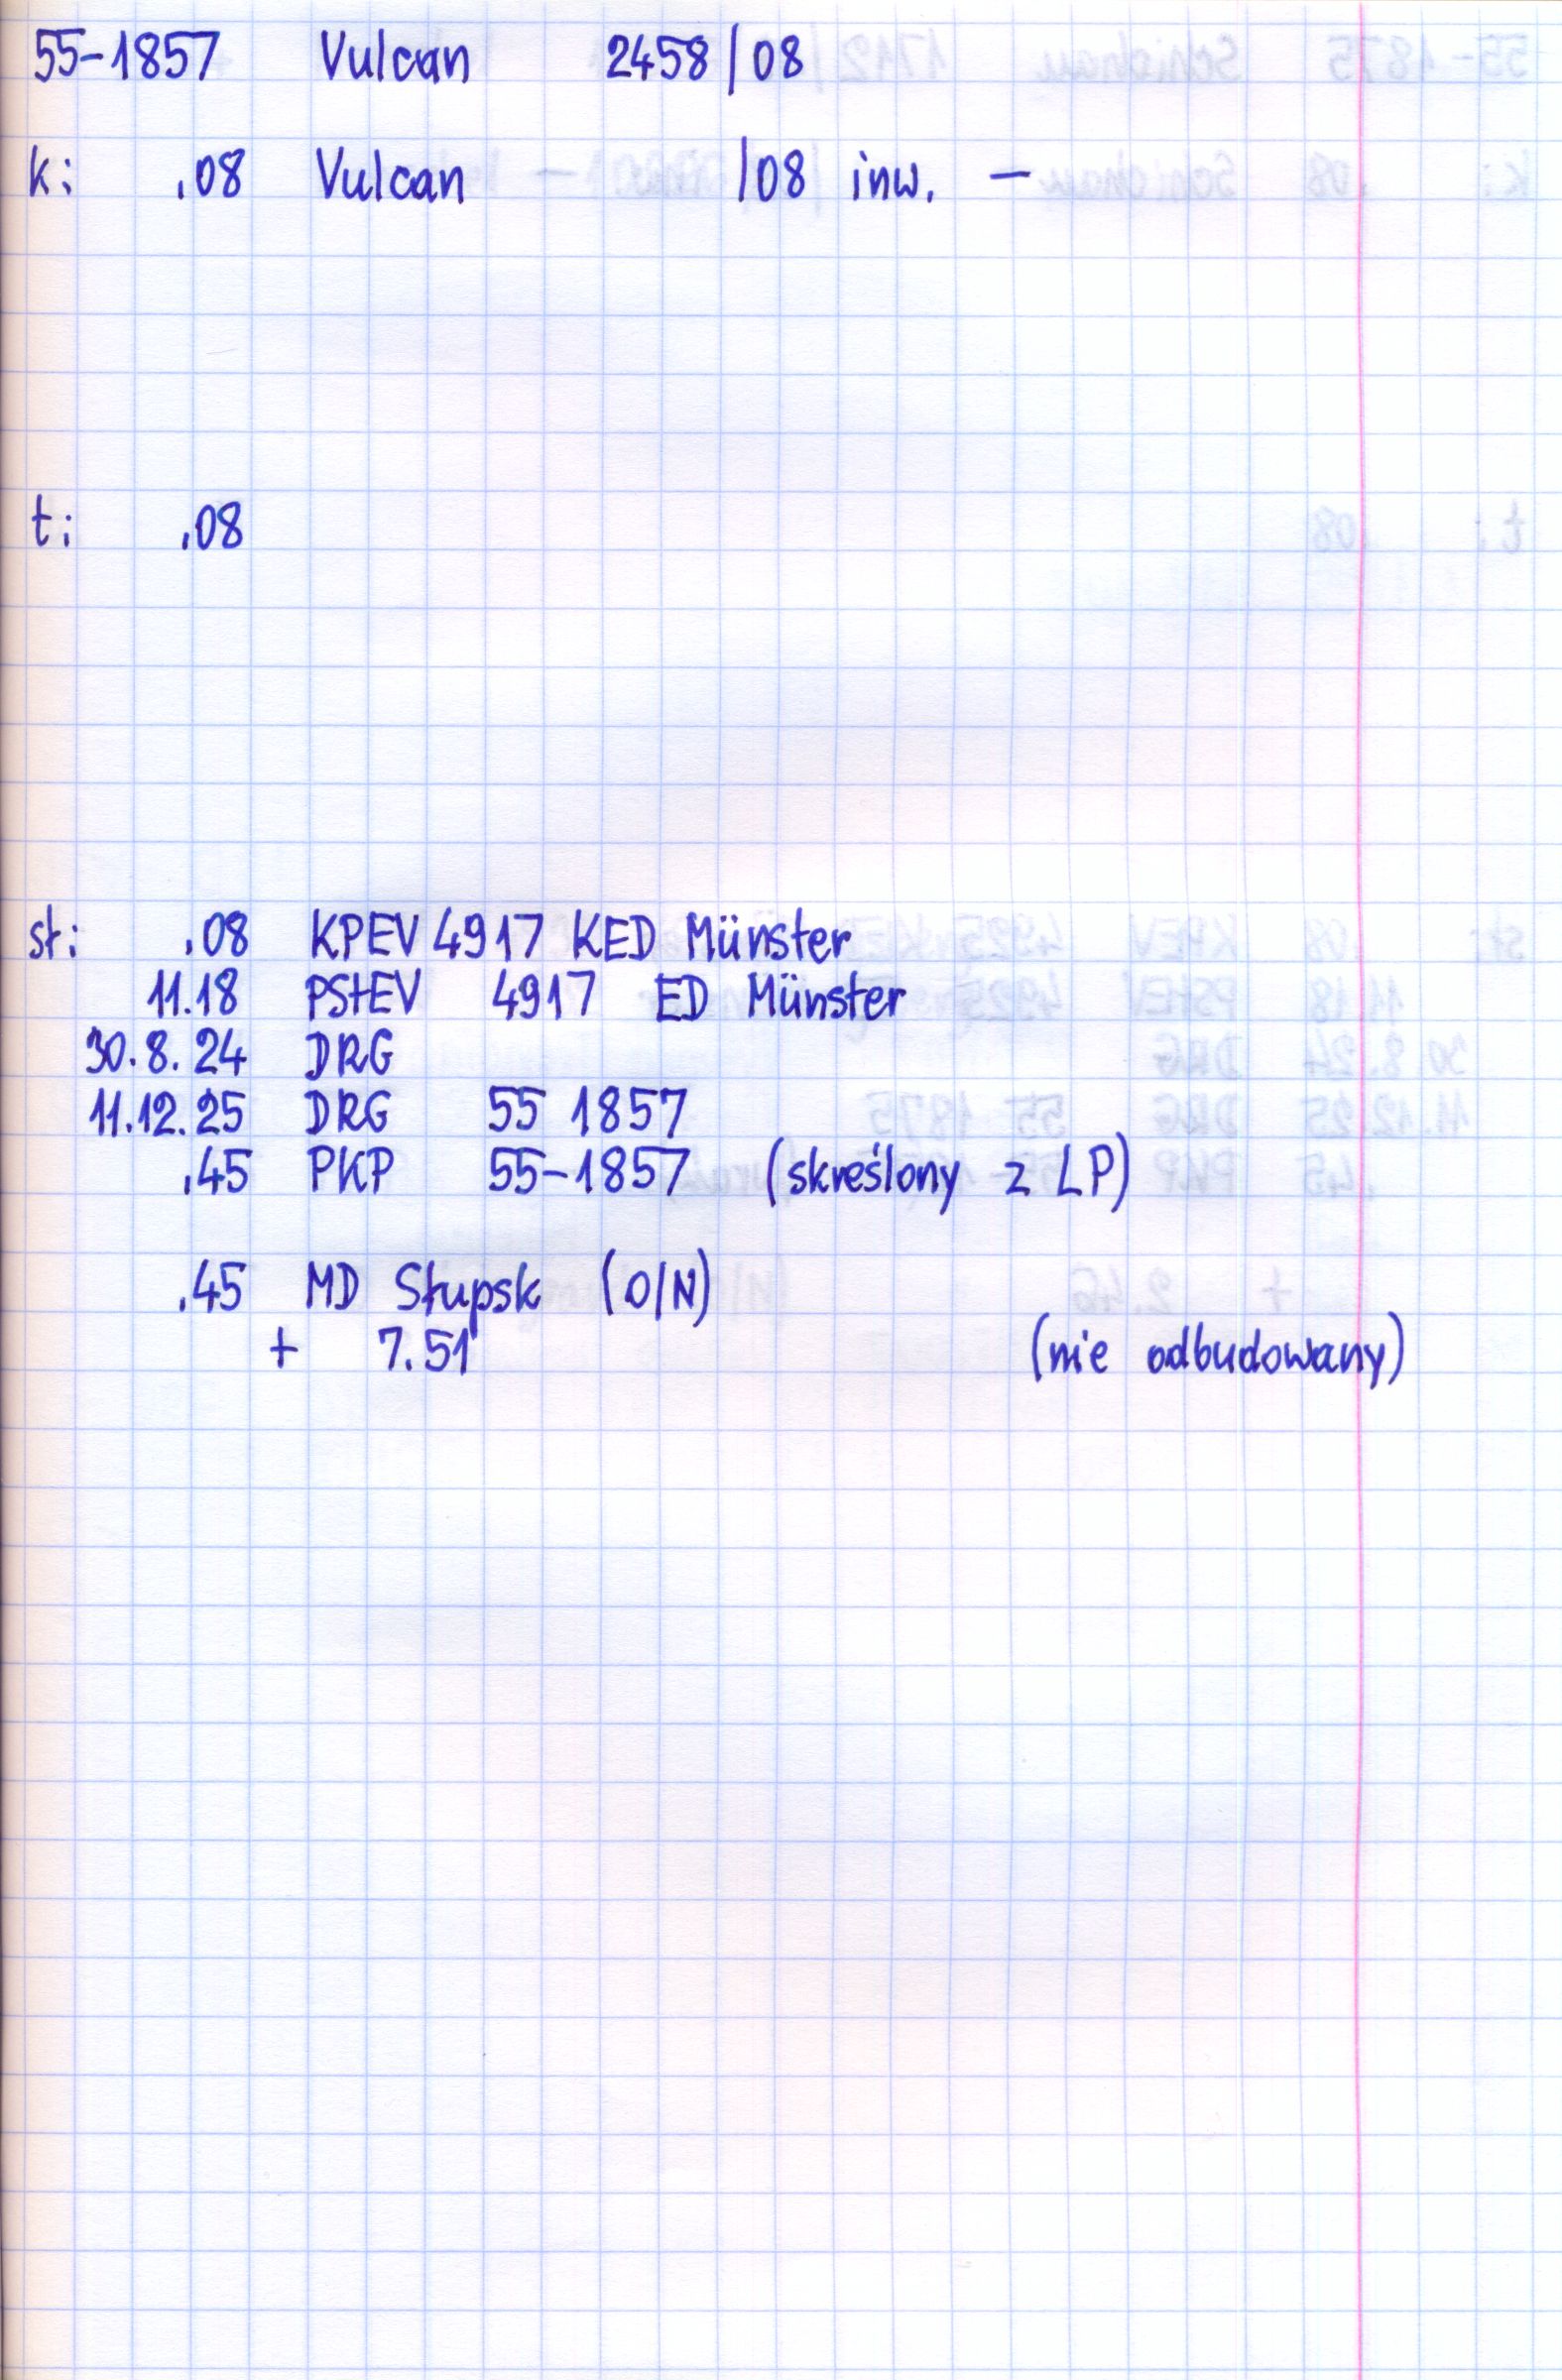 55-1857 Vulcan 2458/08
k: .08 Vulcan /08 inw. —
t: .08
st: .08 KPEV 4917 KED Münster
11.18 PStEV 4917 ED Münster
30.8.24 DRG
11.12.25 DRG 55 1857
.45 PKP 55-1857 (skreślony z LP)
.45 MD Słupsk (O/N)
+ 7.51 (nie odbudowany)